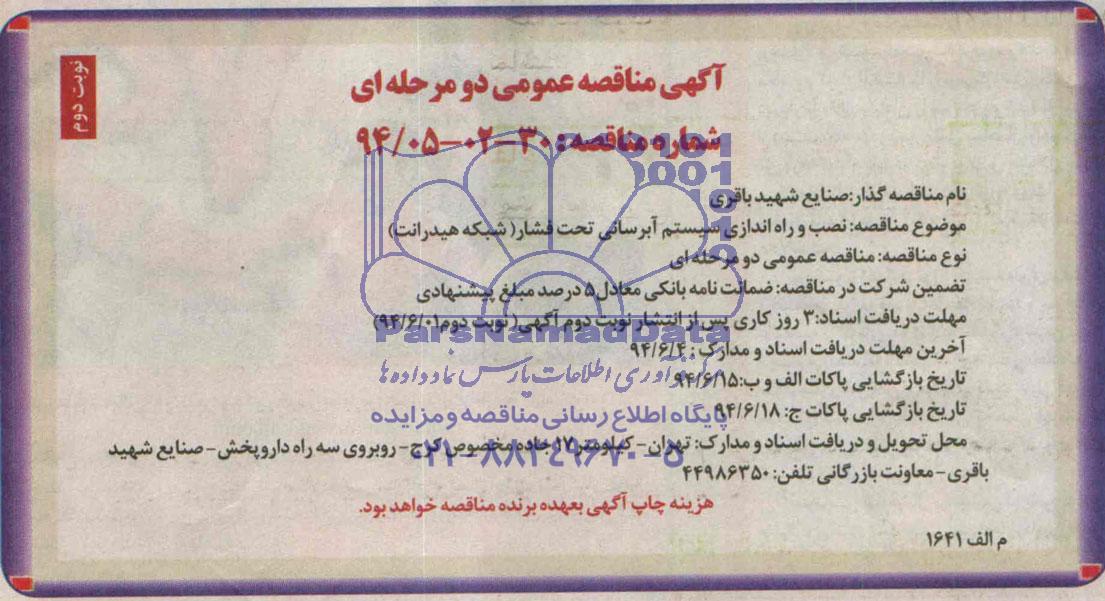 نوبت دوم
آگهی مناقصه عمومی دو مرحله ای
شماره مناقصه: ۳۰-۰۲-۹۴/۰۵
نام مناقصه گذار: صنایع شهید باقری
موضوع مناقصه: نصب و راه اندازی سیستم آبرسانی تحت فشار (شبکه هیدرانت)
نوع مناقصه: مناقصه عمومی دو مرحله ای
تضمین شرکت در مناقصه: ضمانت نامه بانکی معادل ۵ درصد مبلغ پیشنهادی
مهلت دریافت اسناد: ۳ روز کاری پس از انتشار نوبت دوم آگهی (نوبت دوم ۹۴/۶/۰۱)
ParsNamadData
آخرین مهلت دریافت اسناد و مدارک: ۹۴/۶/۴
تاریخ بازگشایی پاکات الف و ب: ۹۴/۶/۱۵
آوری اطلاعات پارس نماد داده ها
تاریخ بازگشایی پاکات ج: ۹۴/۶/۱۸
پایگاه اطلاع رسانی مناقصه و مزایده
محل تحویل و دریافت اسناد و مدارک: تهران - کیلومتر ۱۷ جاده مخصوص کرج - روبروی سه راه داروپخش - صنایع شهید
۰۲۱-۸۸۳۴۹۶۷۰-۵
باقری - معاونت بازرگانی تلفن: ۴۴۹۸۶۳۵۰
هزینه چاپ آگهی بعهده برنده مناقصه خواهد بود.
م الف ۱۶۴۱